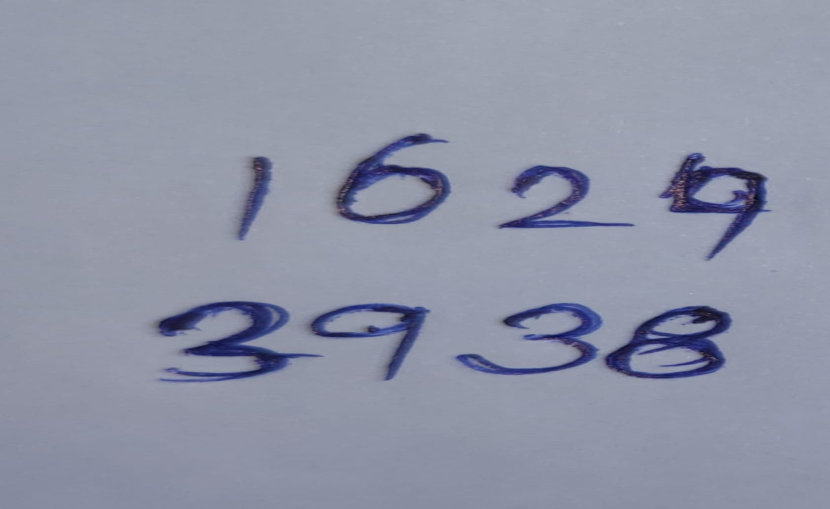 1629
3938